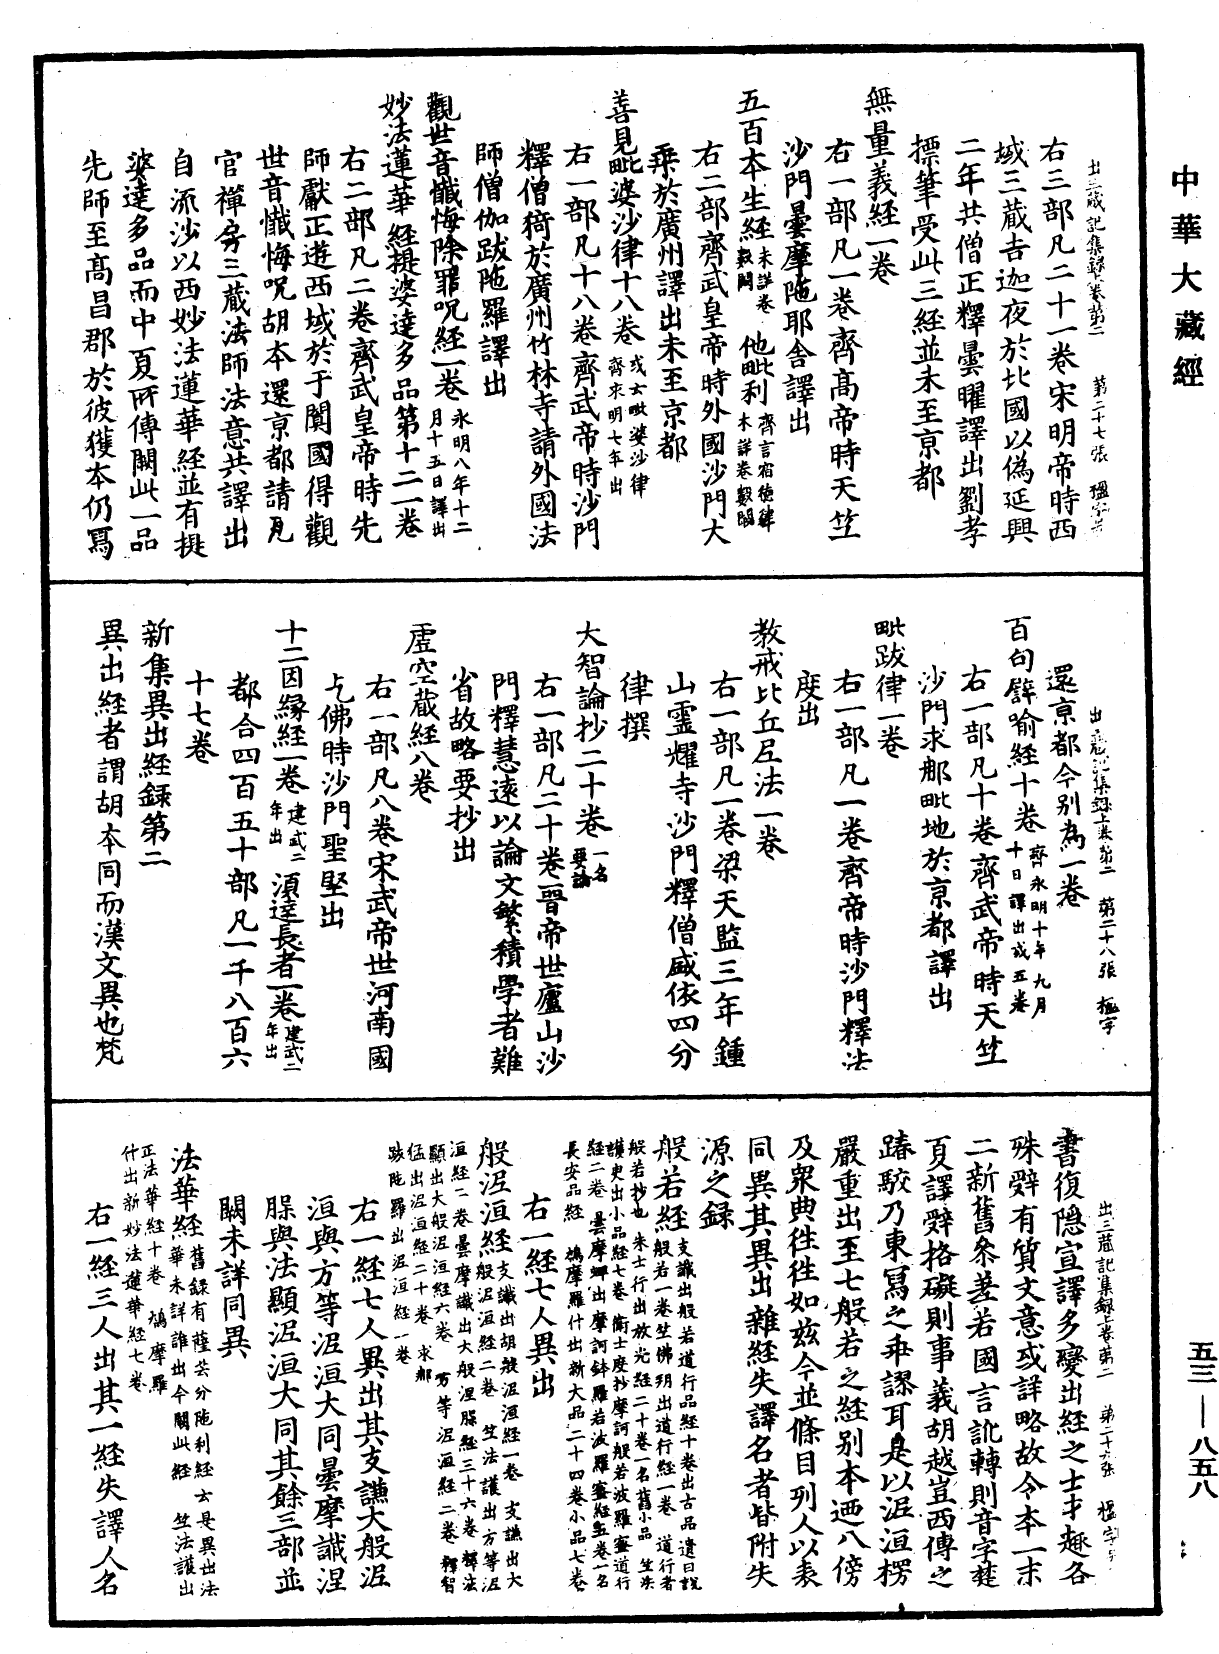 中華大藏經
出三藏記集錄上卷第二　第二十七張　楹字号
右三部凡二十一卷宋明帝時西
域三藏吉迦夜於北國以偽延興
二年共僧正釋曇曜譯出劉孝
摽筆受此三經並未至京都
無量義經一卷
右一部凡一卷齊高帝時天竺
沙門曇摩陁耶舍譯出
五百本生經未詳卷數闕　他毗利齊言宿德律未詳卷數闕
右二部齊武皇帝時外國沙門大
乘於廣州譯出未至京都
善見毗婆沙律十八卷或云毗婆沙律齊永明七年出
右一部凡十八卷齊武帝時沙門
釋僧猗於廣州竹林寺請外國法
師僧伽跋陁羅譯出
觀世音懺悔除罪呪經一卷永明八年十二月十五日譯出
妙法蓮華經提婆達多品第十二一卷
右二部凡二卷齊武皇帝時先
師獻正遊西域於于闐國得觀
世音懺悔呪胡本還京都請瓦
官禪房三藏法師法意共譯出
自流沙以西妙法蓮華經並有提
婆達多品而中夏所傳闕此一品
先師至高昌郡於彼獲本仍寫
出三藏記集錄上卷第二　第二十八張　楹字
還京都今別為一卷
百句譬喻經十卷齊永明十年九月十日譯出或五卷
右一部凡十卷齊武帝時天竺
沙門求那毗地於京都譯出
毗跋律一卷
右一部凡一卷齊帝時沙門釋法
度出
教戒比丘尼法一卷
右一部凡一卷梁天監三年鍾
山靈耀寺沙門釋僧盛依四分
律撰
大智論抄二十卷一名要論
右一部凡二十卷晉帝世廬山沙
門釋慧遠以論文繁積學者難
省故略要抄出
虛空藏經八卷
右一部凡八卷宋武帝世河南國
乞佛時沙門聖堅出
十二因緣經一卷建武二年出　須達長者一卷建武二年出
都合四百五十部凡一千八百六
十七卷
新集異出經錄第二
異出經者謂胡本同而漢文異也梵
出三藏記集錄上卷第二　第二十九張　楹字号
書復隱宣譯多變出經之士才趣各
殊辤有質文意或詳略故令本一末
二新舊參差若國言訛轉則音字楚
夏譯辤格礙則事義胡越豈西傳之
踳駮乃東寫之乖謬耳是以泥洹楞
嚴重出至七般若之經別本迺八傍
及衆典往往如茲今並條目列人以表
同異其異出雜經失譯名者皆附失
源之錄
般若經支讖出般若道行品經十卷出古品遺日說般若一卷竺佛朔出道行經一卷道行者般若抄也朱士行出放光經二十卷一名舊小品竺法護更出小品經七卷衞士度抄摩訶般若波羅蜜道行經二卷曇摩蜱出摩訶鉢羅若波羅蜜經五卷一名長安品經鳩摩羅什出新大品二十四卷小品七卷
右一經七人異出
般泥洹經支讖出胡般泥洹經一卷支謙出大般泥洹經二卷竺法護出方等泥洹經二卷曇摩讖出大般涅槃經三十六卷釋法顯出大般泥洹經六卷方等泥洹經二卷釋智猛出泥洹經二十卷求那跋陁羅出泥洹經一卷
右一經七人異出其支謙大般泥
洹與方等泥洹大同曇摩讖涅
槃與法顯泥洹大同其餘三部並
闕未詳同異
法華經舊錄有薩芸分陁利經云是異出法華未詳誰出今闕此經竺法護出正法華經十卷鳩摩羅什出新妙法蓮華經七卷
右一經三人出其一經失譯人名
五三—八五八